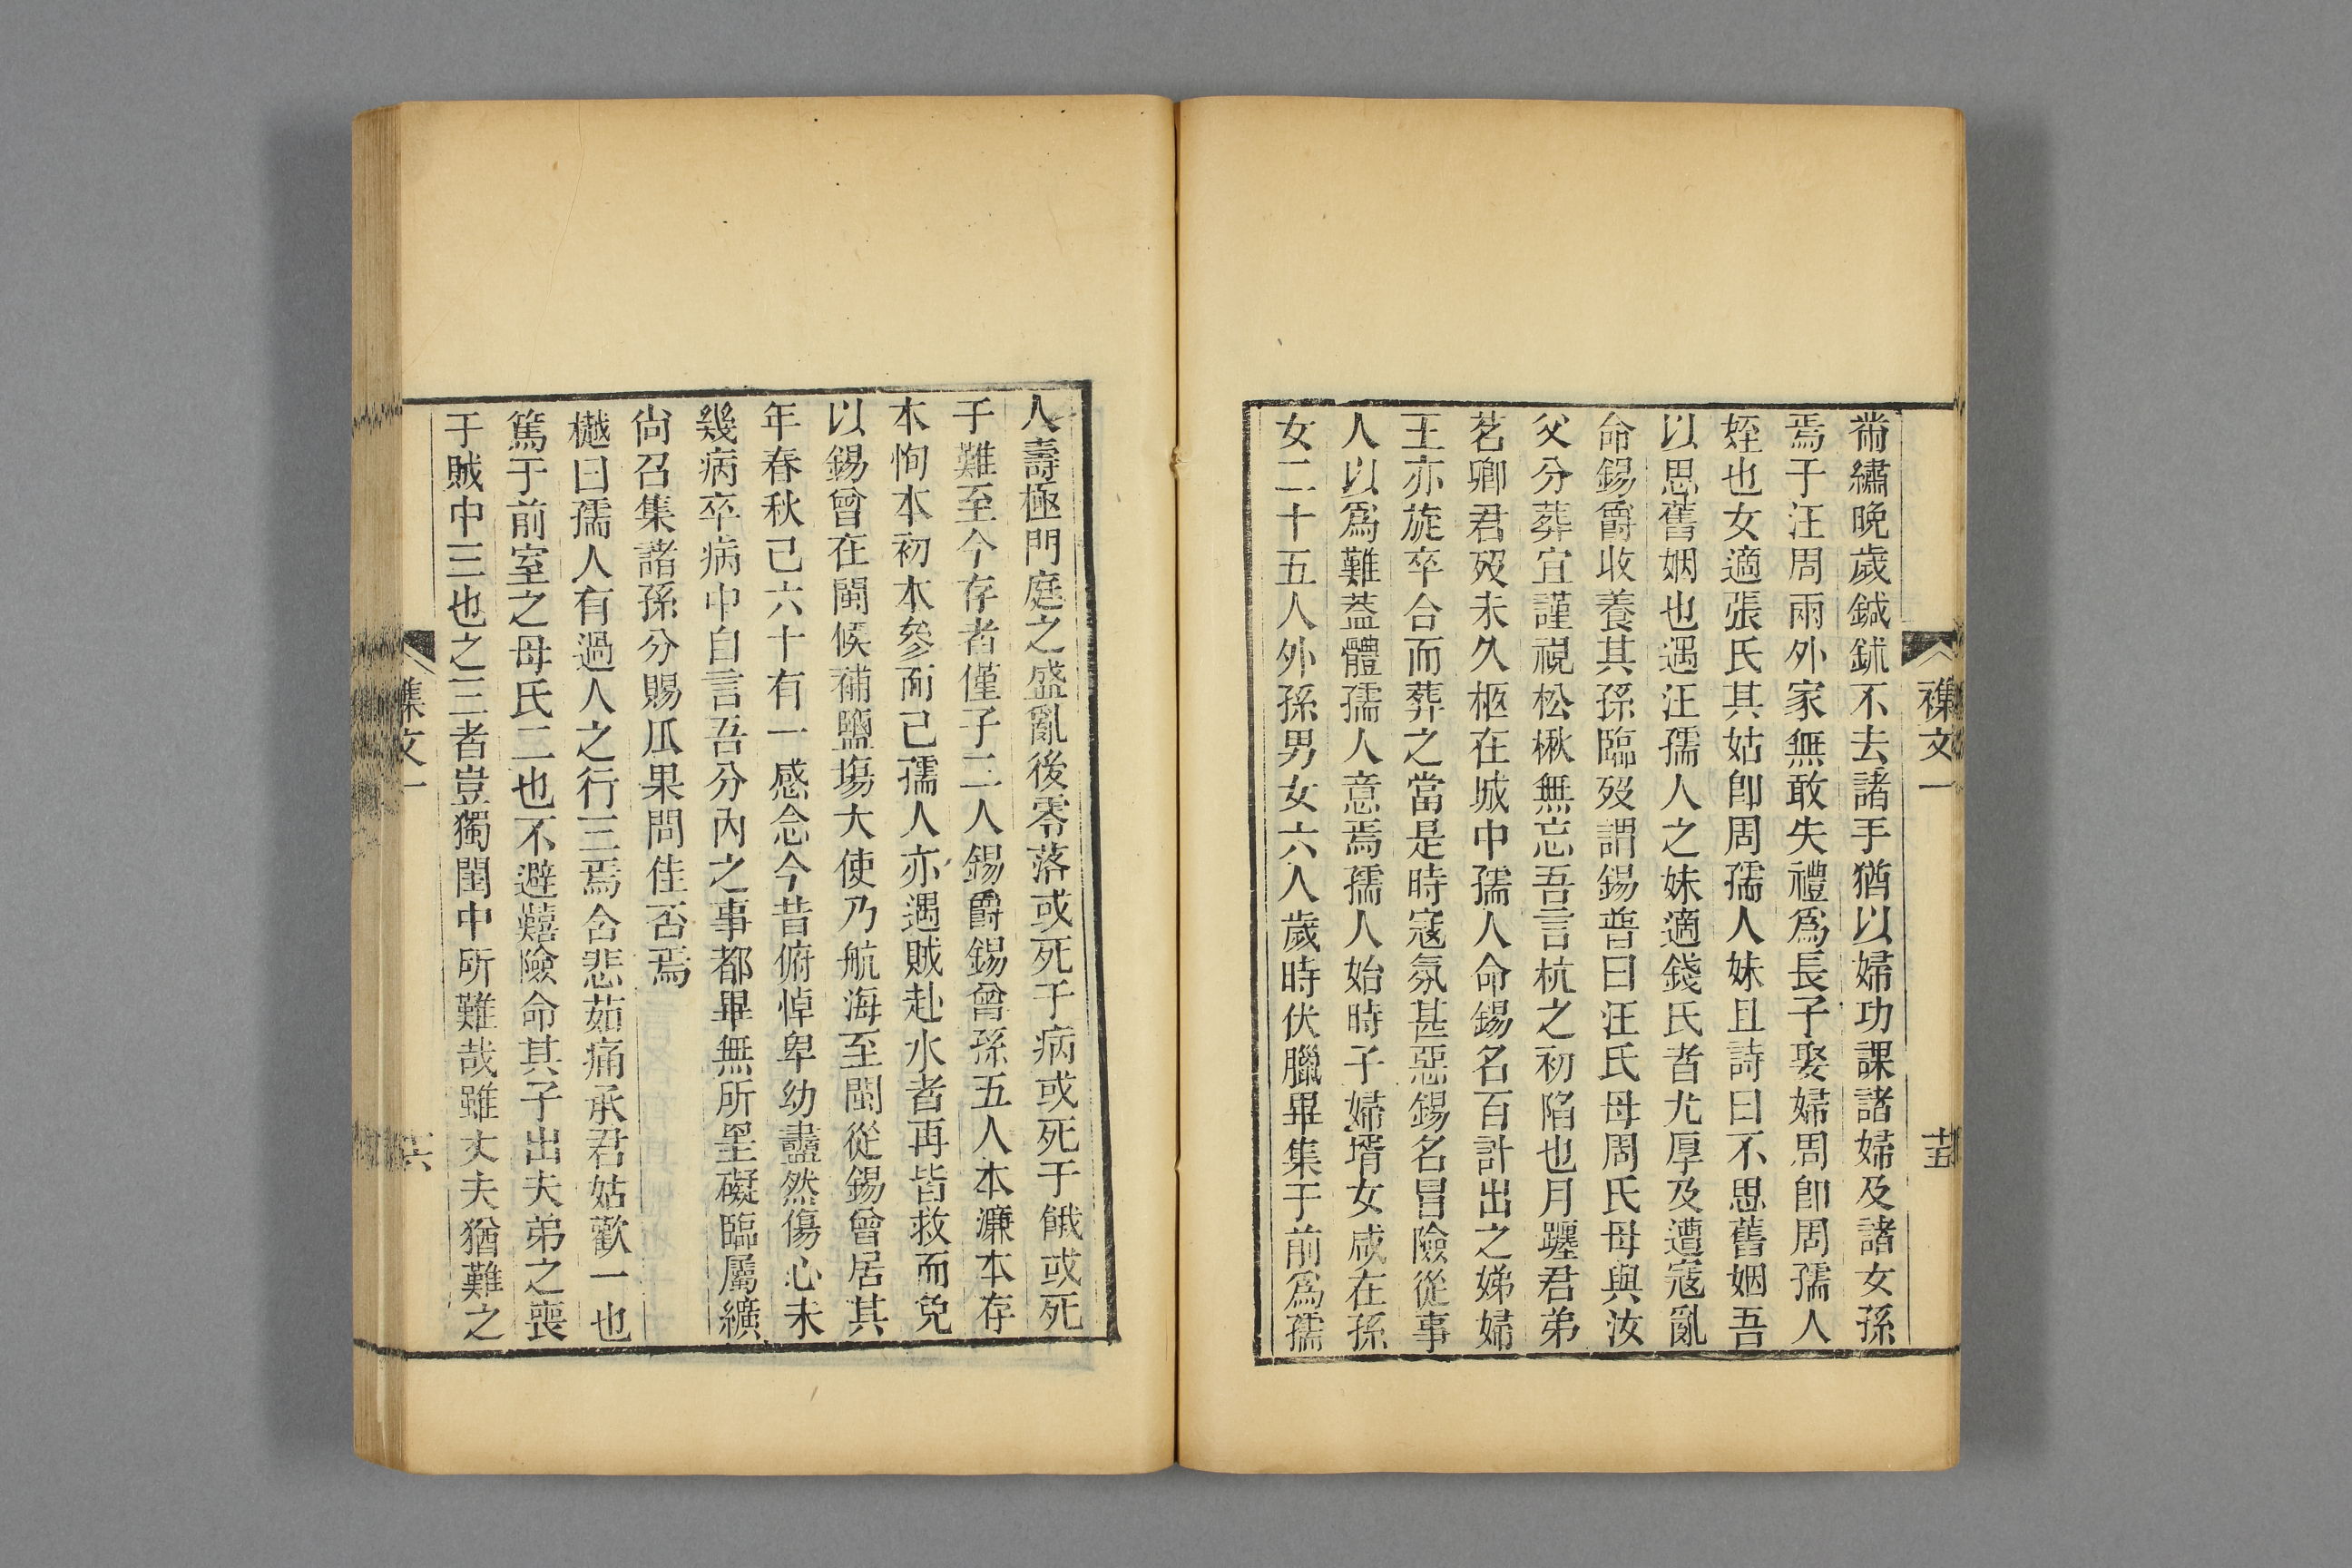 襍文一
十五
黹繡晚歲鍼鉥不去諸手猶以婦功課諸婦及諸女孫
焉于汪周兩外家無敢失禮爲長子娶婦周卽周孺人
姪也女適張氏其姑卽周孺人妹且詩曰不思舊姻吾
以思舊姻也遇汪孺人之妹適錢氏者尤厚及遭寇亂
命錫爵收養其孫臨歿謂錫普曰汪氏母周氏母與汝
父分葬宜謹視松楸無忘吾言杭之初陷也月躔君弟
茗卿君歿未久柩在城中孺人命錫名百計出之娣婦
王亦旋卒合而葬之當是時寇氛甚惡錫名冒險從事
人以爲難蓋體孺人意焉孺人始時子婦壻女咸在孫
女二十五人外孫男女六人歲時伏臘畢集于前爲孺
人壽極門庭之盛亂後零落或死于病或死于餓或死
于難至今存者僅子二人錫爵錫曾孫五人本濂本存
本恂本初本參而已孺人亦遇賊赴水者再皆救而免
以錫曾在閩候補鹽塲大使乃航海至閩從錫曾居其
年春秋已六十有一感念今昔俯悼卑幼衋然傷心未
幾病卒病中自言吾分內之事都畢無所罣礙臨屬纊
尙召集諸孫分賜瓜果問佳否焉
樾曰孺人有過人之行三焉含悲茹痛承君姑歡一也
篤于前室之母氏二也不避囏險命其子出夫弟之喪
于賊中三也之三者豈獨閨中所難哉雖丈夫猶難之
襍文一
六